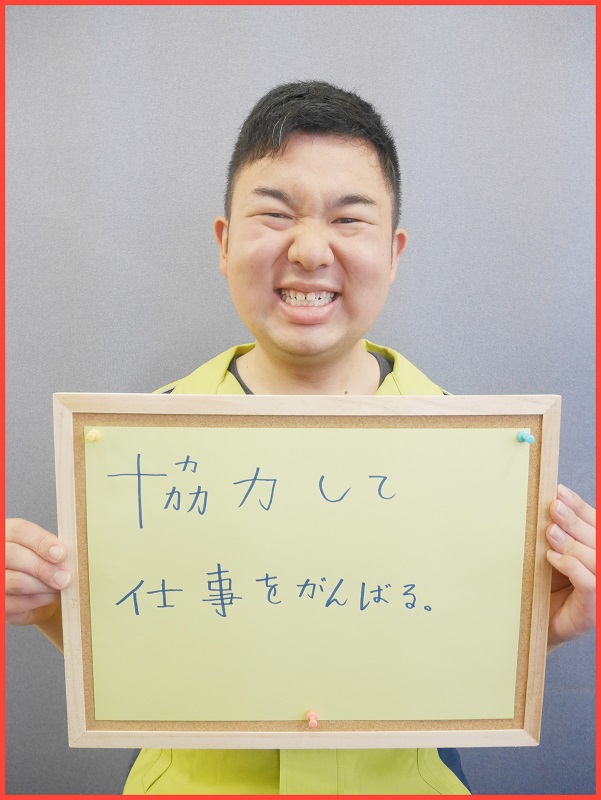 協力して
仕事をがんばる。